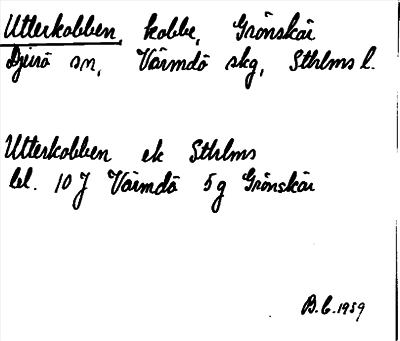 Utterkobben, kobbe, Grönskär
Djurö sn, Värmdö skg, Sthlms l.
Utterkobben ek Sthlms
bl. 10 J Värmdö 5 g Grönskär
B.C. 1959